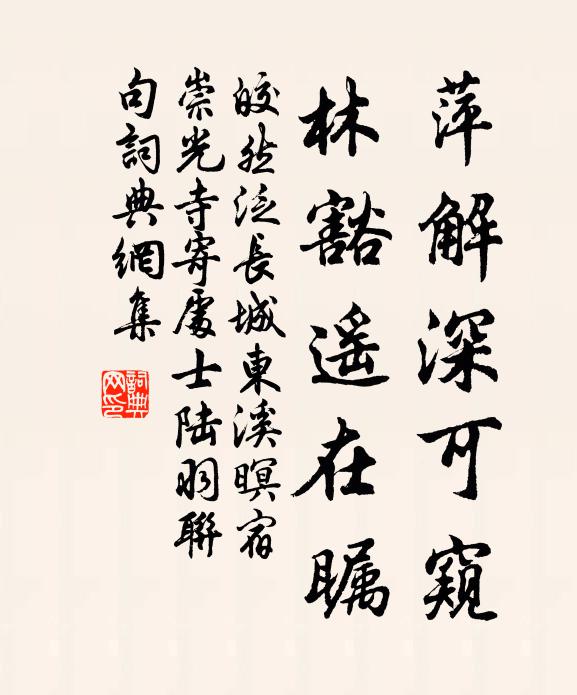 萍解深可窺
林豁遥在瞩
皎然泛長城東溪暝宿
崇光寺寄處士陆羽聯
句詞典網集
詞典
网印